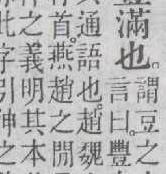 滿也。
謂豆之
言曰。豐
通語也。趙魏
首。燕趙之閒
之義明其本
此字引伸之